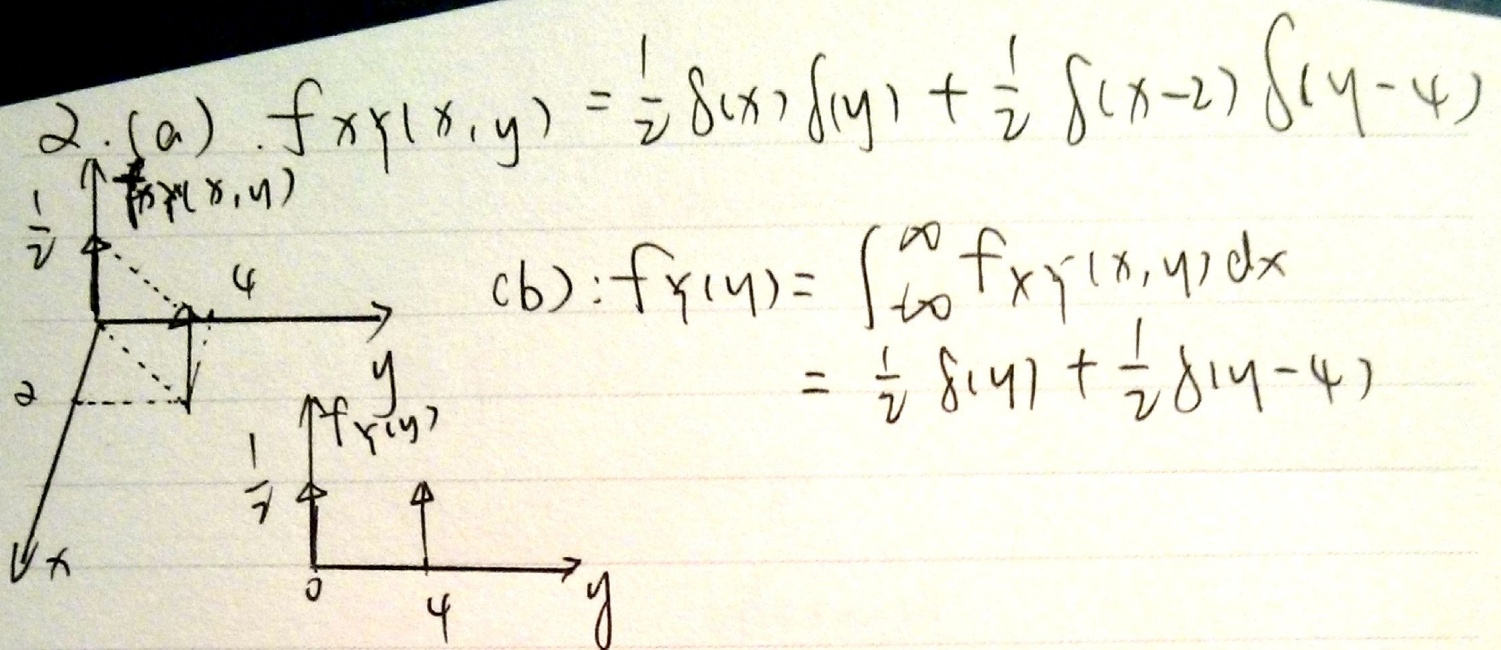 2.(a). fXY(x,y) = 1/2 δ(x) δ(y) + 1/2 δ(x-2) δ(y-4)
fXY(x,y)
1/2
4
y
2
x
(b): fY(y) = ∫_{-∞}^{∞} fXY(x,y) dx
= 1/2 δ(y) + 1/2 δ(y-4)
fY(y)
1/2
0
4
y